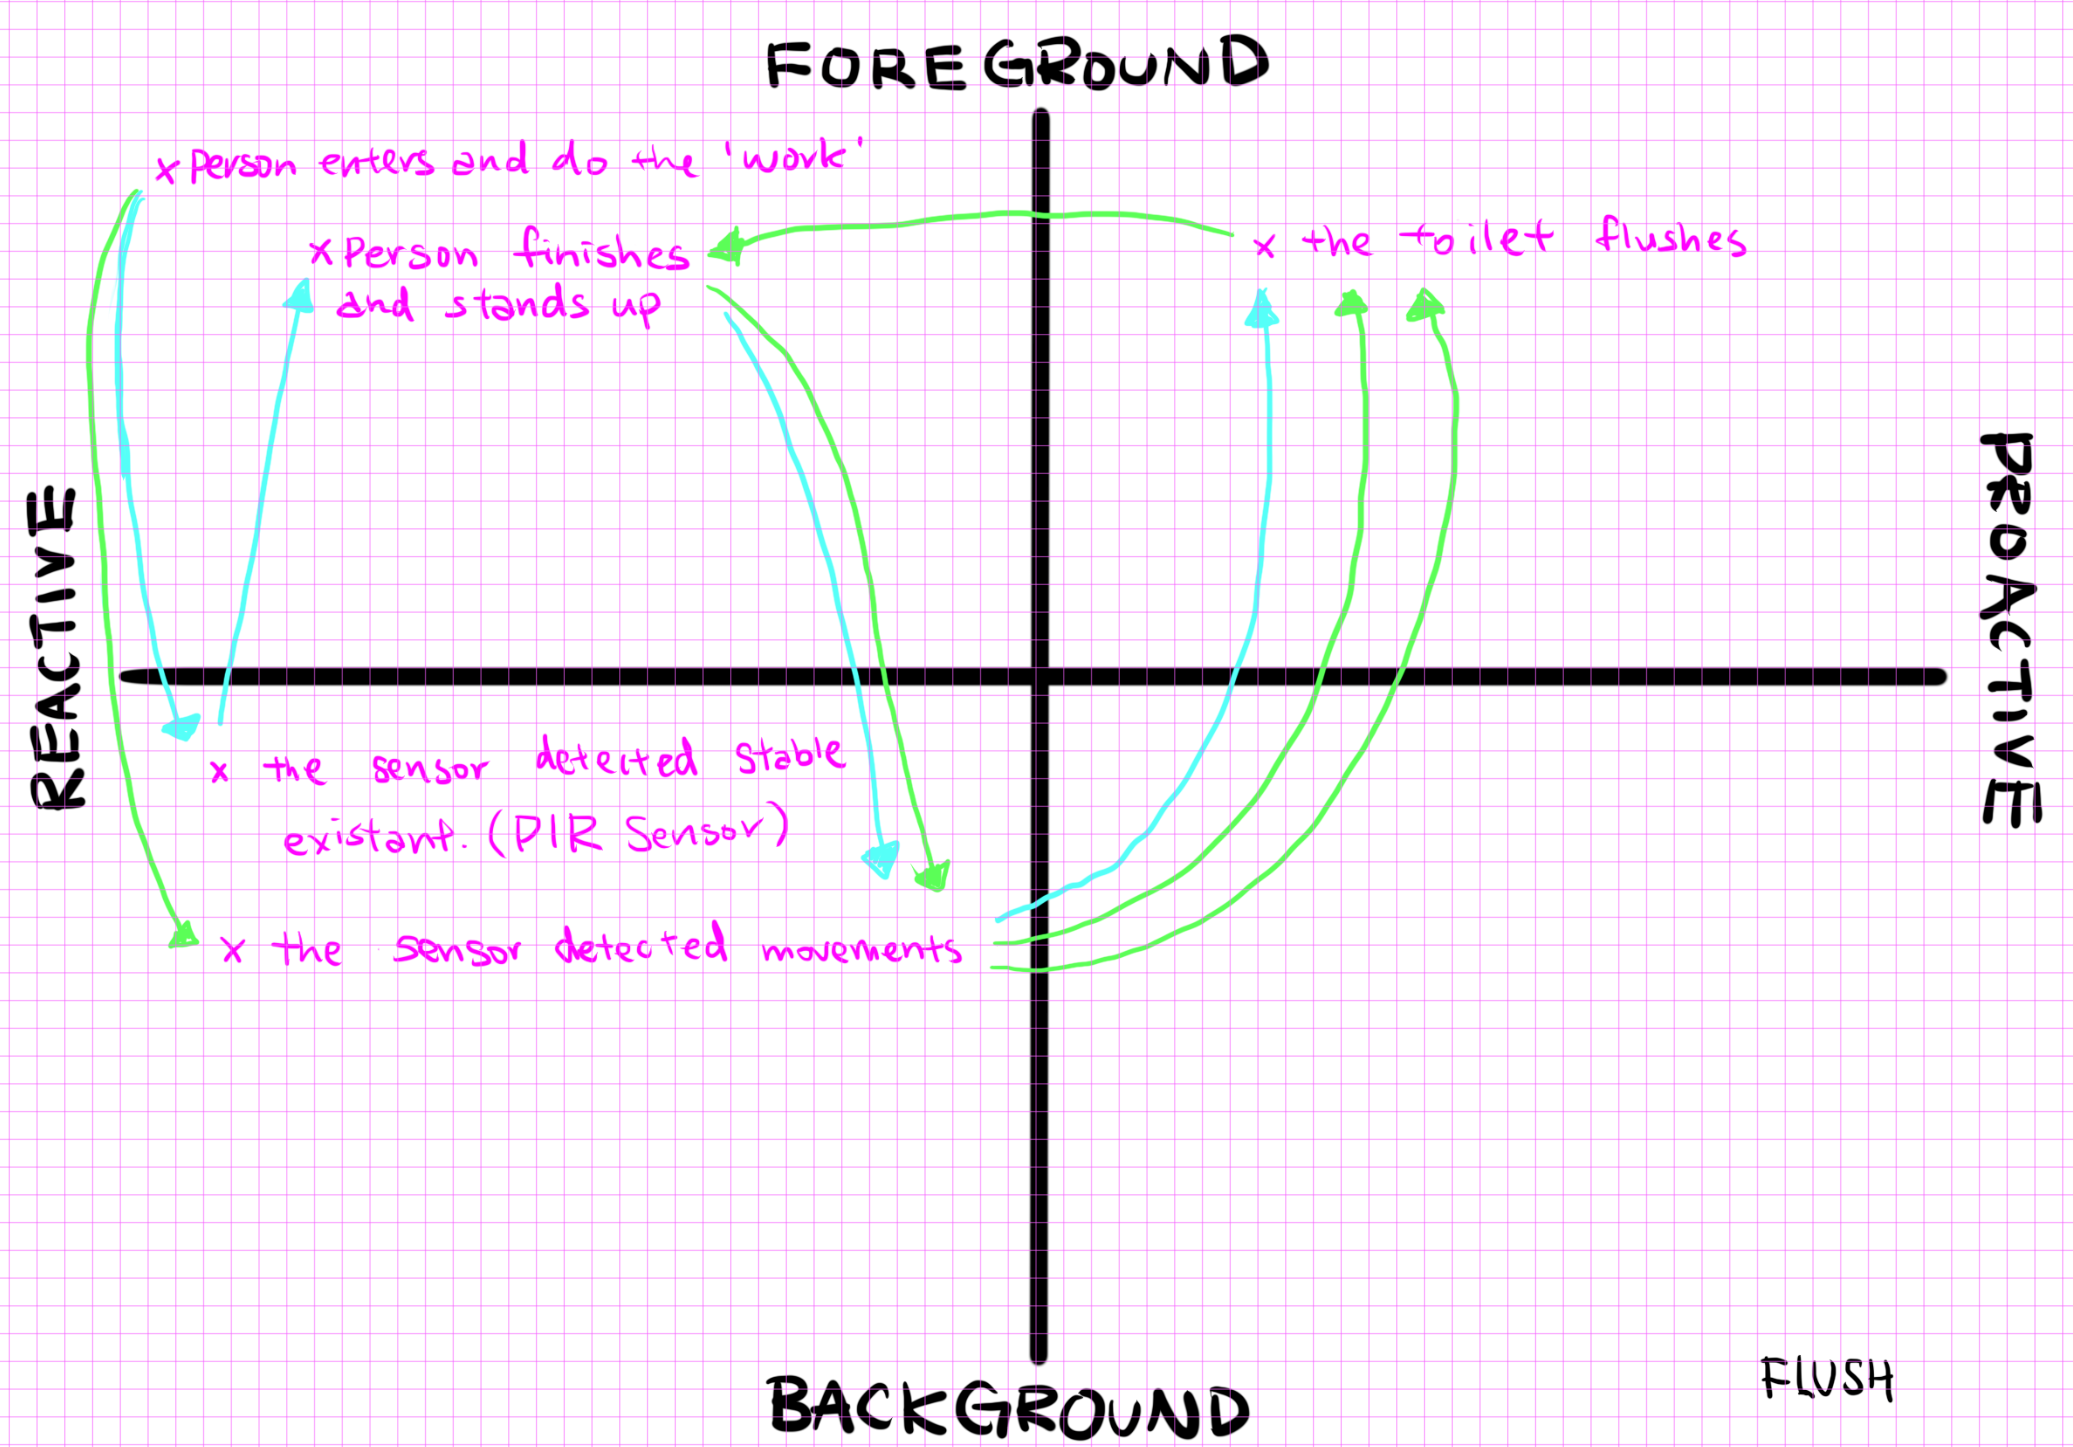 FOREGROUND
x Person enters and do the 'work'
x Person finishes
and stands up
x the toilet flushes
REACTIVE
PROACTIVE
x the sensor detected stable
existant. (PIR Sensor)
x the sensor detected movements
BACKGROUND
FLUSH